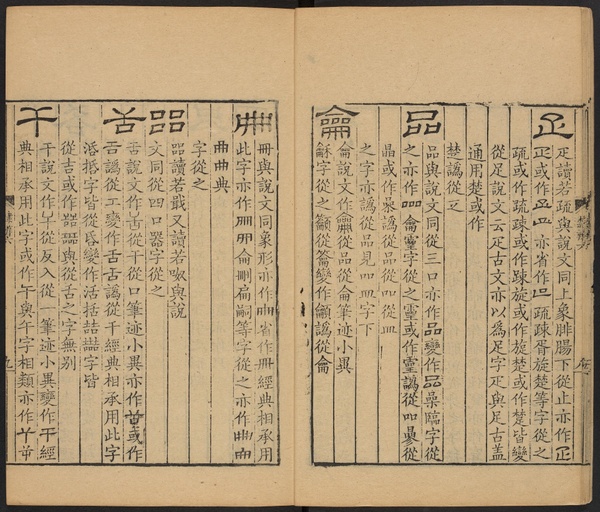 疋
疋讀若疏與說文同上象腓腸下從止亦作𤴔
疋或作疋疋亦省作疋疏疎胥旋楚等字從之
疏或作疏疎或作踈旋或作旋楚或作楚皆變
從足說文云疋古文亦以為足字疋與足古蓋
通用楚或作
楚譌從疋
品
品與說文同從三口亦作品變作品喿臨字從
之亦作龠靈字從之靈或作靈譌從叩曑從
晶或作曑譌從品從叩從皿
之字亦譌從品見叩皿字下
龠
龠說文作龠從品從侖筆迹小異
龢字從之籲從籥變作籲譌從龠
冊
冊與說文同象形亦作冊省作冊經典相承用
此字亦作冊侖刪扁嗣等字從之亦作曲
曲曲典
字從之
㗊
㗊讀若戢又讀若呶與說
文同從四口器字從之
舌
舌說文作舌從干從口筆迹小異亦作舌或作
舌譌從工變作舌舌譌從千經典相承用此字
湉栝字皆從昏變作活括詰字皆
從吉或作㗊與從舌之字無別
干
干說文作干從反入從一筆迹小異變作干經
典相承用此字或作午與午字相類亦作
九